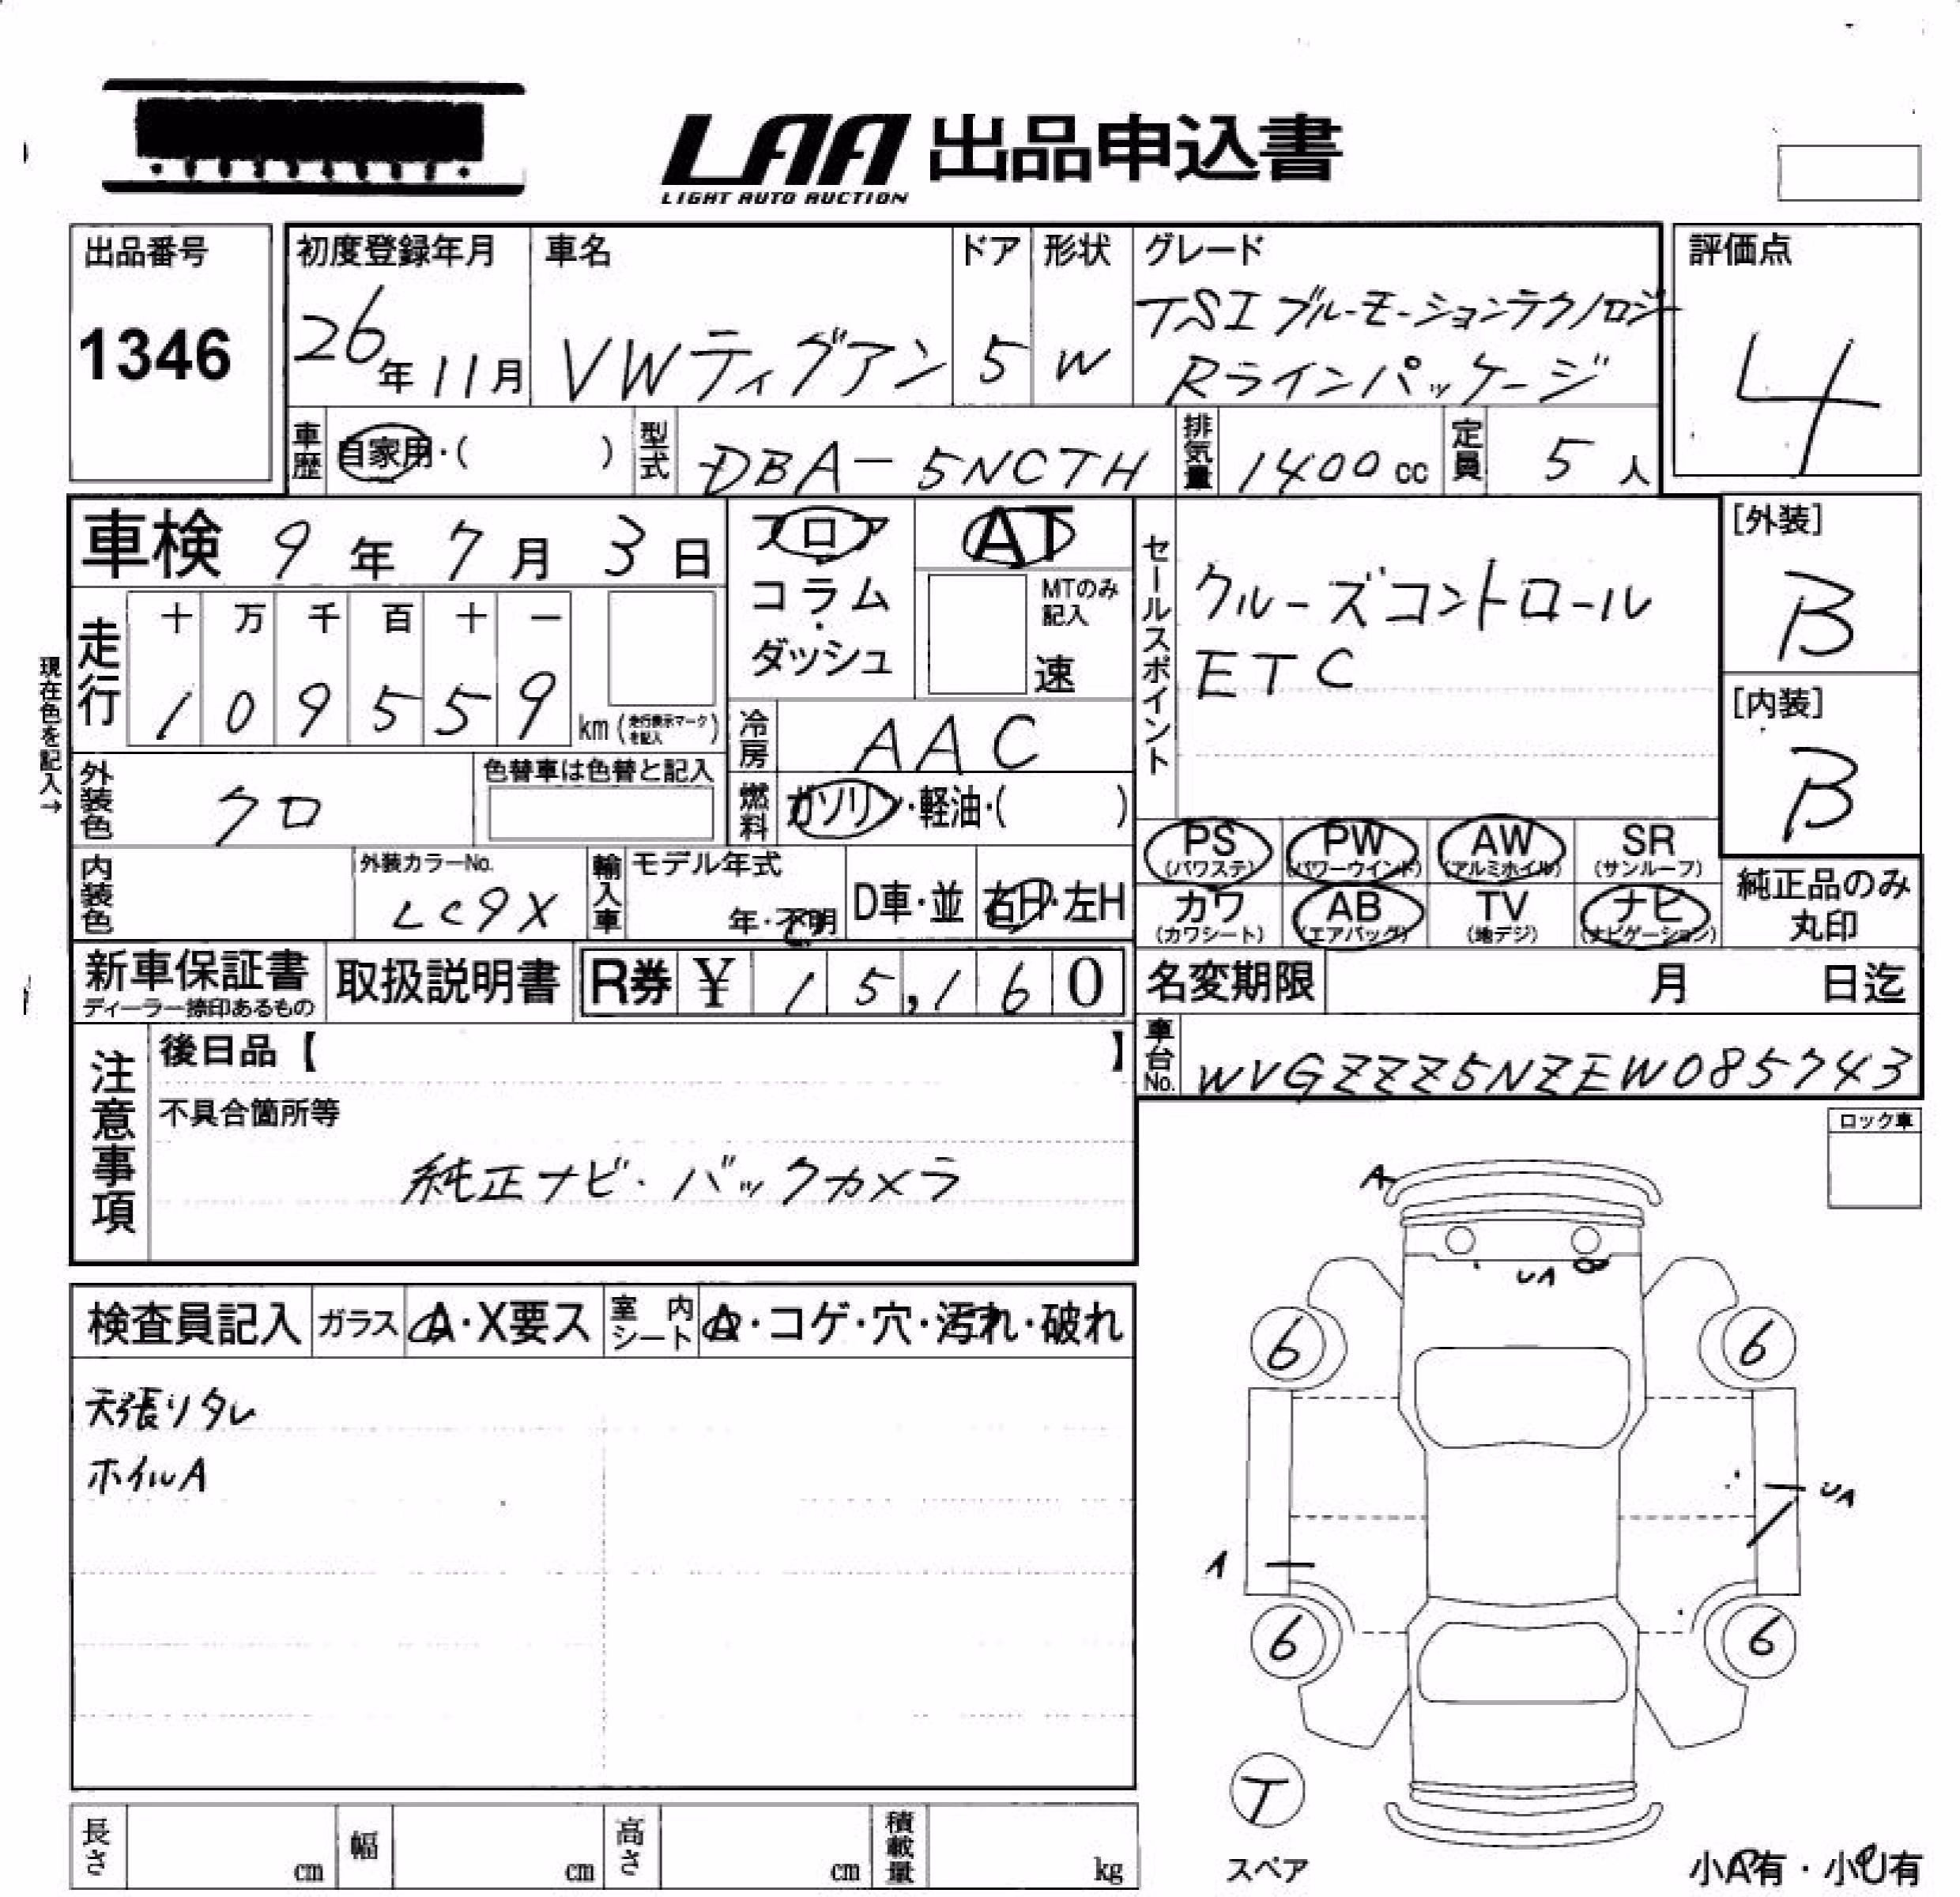 LAA 出品申込書
LIGHT AUTO AUCTION
出品番号
1346
初度登録年月
26年11月
車名
VWティグアン
ドア
5
形状
W
グレード
TSIブルーモーションテクノロジー
Rラインパッケージ
評価点
4
車歴 自家用・( )
型式 DBA-5NCTH
排気量 1400cc
定員 5人
車検 9年7月3日
フロア
コラム
・
ダッシュ
AT
MTのみ記入
速
セールスポイント
クルーズコントロール
ETC
[外装]
B
[内装]
B
現在色を記入→
走行
十 万 千 百 十 一
1 0 9 5 5 9 km (走行表示マークを記入)
冷房 AAC
外装色 クロ
色替車は色替と記入
燃料 ガソリン・軽油・( )
PS (パワステ) PW (パワーウインド) AW (アルミホイル) SR (サンルーフ)
カワ (カワシート) AB (エアバッグ) TV (地デジ) ナビ (ナビゲーション)
純正品のみ
丸印
内装色
外装カラーNo.
LC9X
輸入車
モデル年式
年・不明
D車・並
右H・左H
新車保証書
ディーラー捺印あるもの
取扱説明書
R券 ¥ 15,160
名変期限 月 日迄
車台No. WVGZZZ5NZEW085743
注意事項
後日品【 】
不具合箇所等
純正ナビ・バックカメラ
ロック車
検査員記入 ガラス A・X要ス 室内シート A・コゲ・穴・汚れ・破れ
天張りタレ
ホイルA
A
UA
6
6
UA
A
6
6
T
スペア
小A有・小U有
長さ cm 幅 cm 高さ cm 積載量 kg